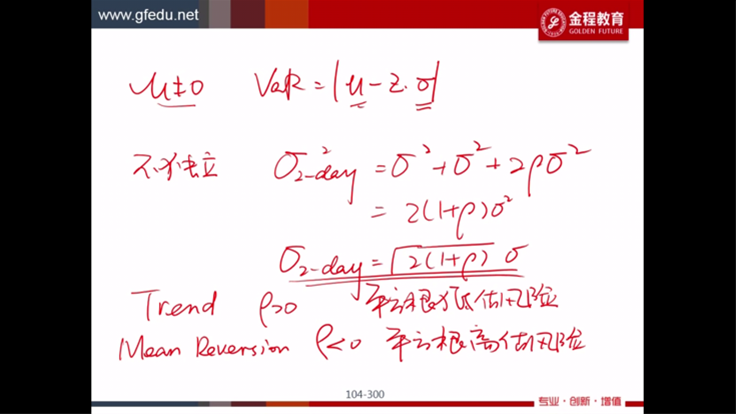 www.gfedu.net
金程教育
GOLDEN FUTURE
μ≠0 VaR=|μ-z·σ|
不独立 σ²₂₋day = σ²+σ²+2ρσ²
= 2(1+ρ)σ²
σ₂₋day = √2(1+ρ) σ
Trend ρ>0 平方根低估风险
Mean Reversion ρ<0 平方根高估风险
104-300
专业·创新·增值